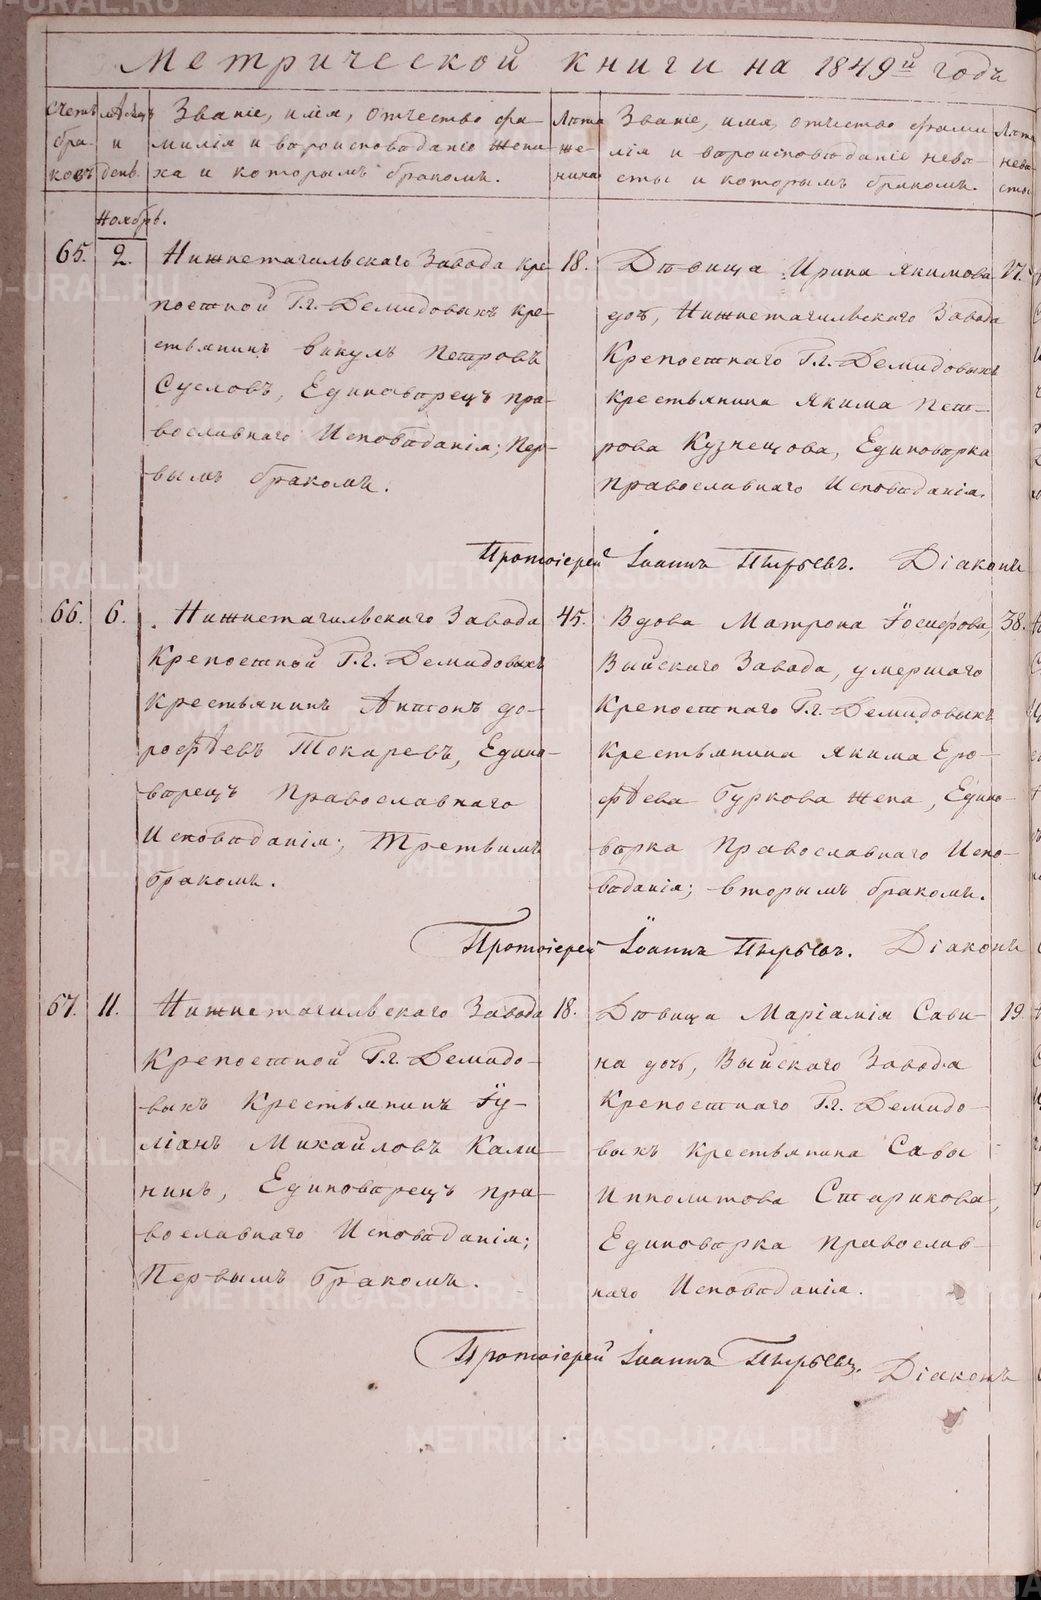 Метрической книги на 1849й годъ
Счетъ бра-ковъ
Мѣсяцъ и день.
Званіе, имя, отчество фа-
милія и вѣроисповѣданіе жени-
ха и которымъ бракомъ.
Лѣта же-ниха
Званіе, имя, отчество фами
лія и вѣроисповѣданіе невѣ-
сты и которымъ бракомъ.
Лѣта невѣ-сты
Ноябрь.
65. 2.
Нижнетагильскаго Завода кре
постной Гг. Демидовыхъ кре-
стьянинъ Викулъ Петровъ
Сусловъ, Единовѣрецъ пра-
вославнаго Исповѣданія; Пер-
вымъ бракомъ.
18.
Дѣвица Ирина Якимова
доч, Нижнетагильскаго Завода
Крепостнаго Гг. Демидовыхъ
крестьянина Якима Пет-
рова Кузнецова, Единовѣрка
Православнаго Исповѣданія.
17.
Протоіерей Іоаннъ Пырьевъ. Діаконъ
66. 6.
Нижнетагильскаго Завода
Крепостной Гг. Демидовыхъ
Крестьянинъ Антонъ до-
рофѣевъ Токаревъ, Едино-
вѣрецъ Православнаго
Исповѣданія; Третьимъ
бракомъ.
45.
Вдова Матрона Іосифова,
Выйскаго Завода, умершаго
Крепостнаго Гг. Демидовыхъ
Крестьянина Якима Еро-
фѣева Буркова жена, Едино-
вѣрка Православнаго Испо-
вѣданія; вторымъ бракомъ.
38.
Протоіерей Іоаннъ Пырьевъ. Діаконъ
67. 11.
Нижнетагильскаго Завода
Крепостной Гг. Демидо-
выхъ Крестьянинъ Іу-
ліанъ Михайловъ Кали-
нинъ, Единовѣрецъ пра-
вославнаго Исповѣданія;
Первымъ бракомъ.
18.
Дѣвица Маріамія Сави-
на доч, Выйскаго Завода
Крепостнаго Гг. Демидо-
выхъ крестьянина Савы
Ипполитова Старикова,
Единовѣрка Православ-
наго Исповѣданія.
19.
Протоіерей Іоаннъ Пырьевъ. Діаконъ
METRIKI.GASO-URAL.RU